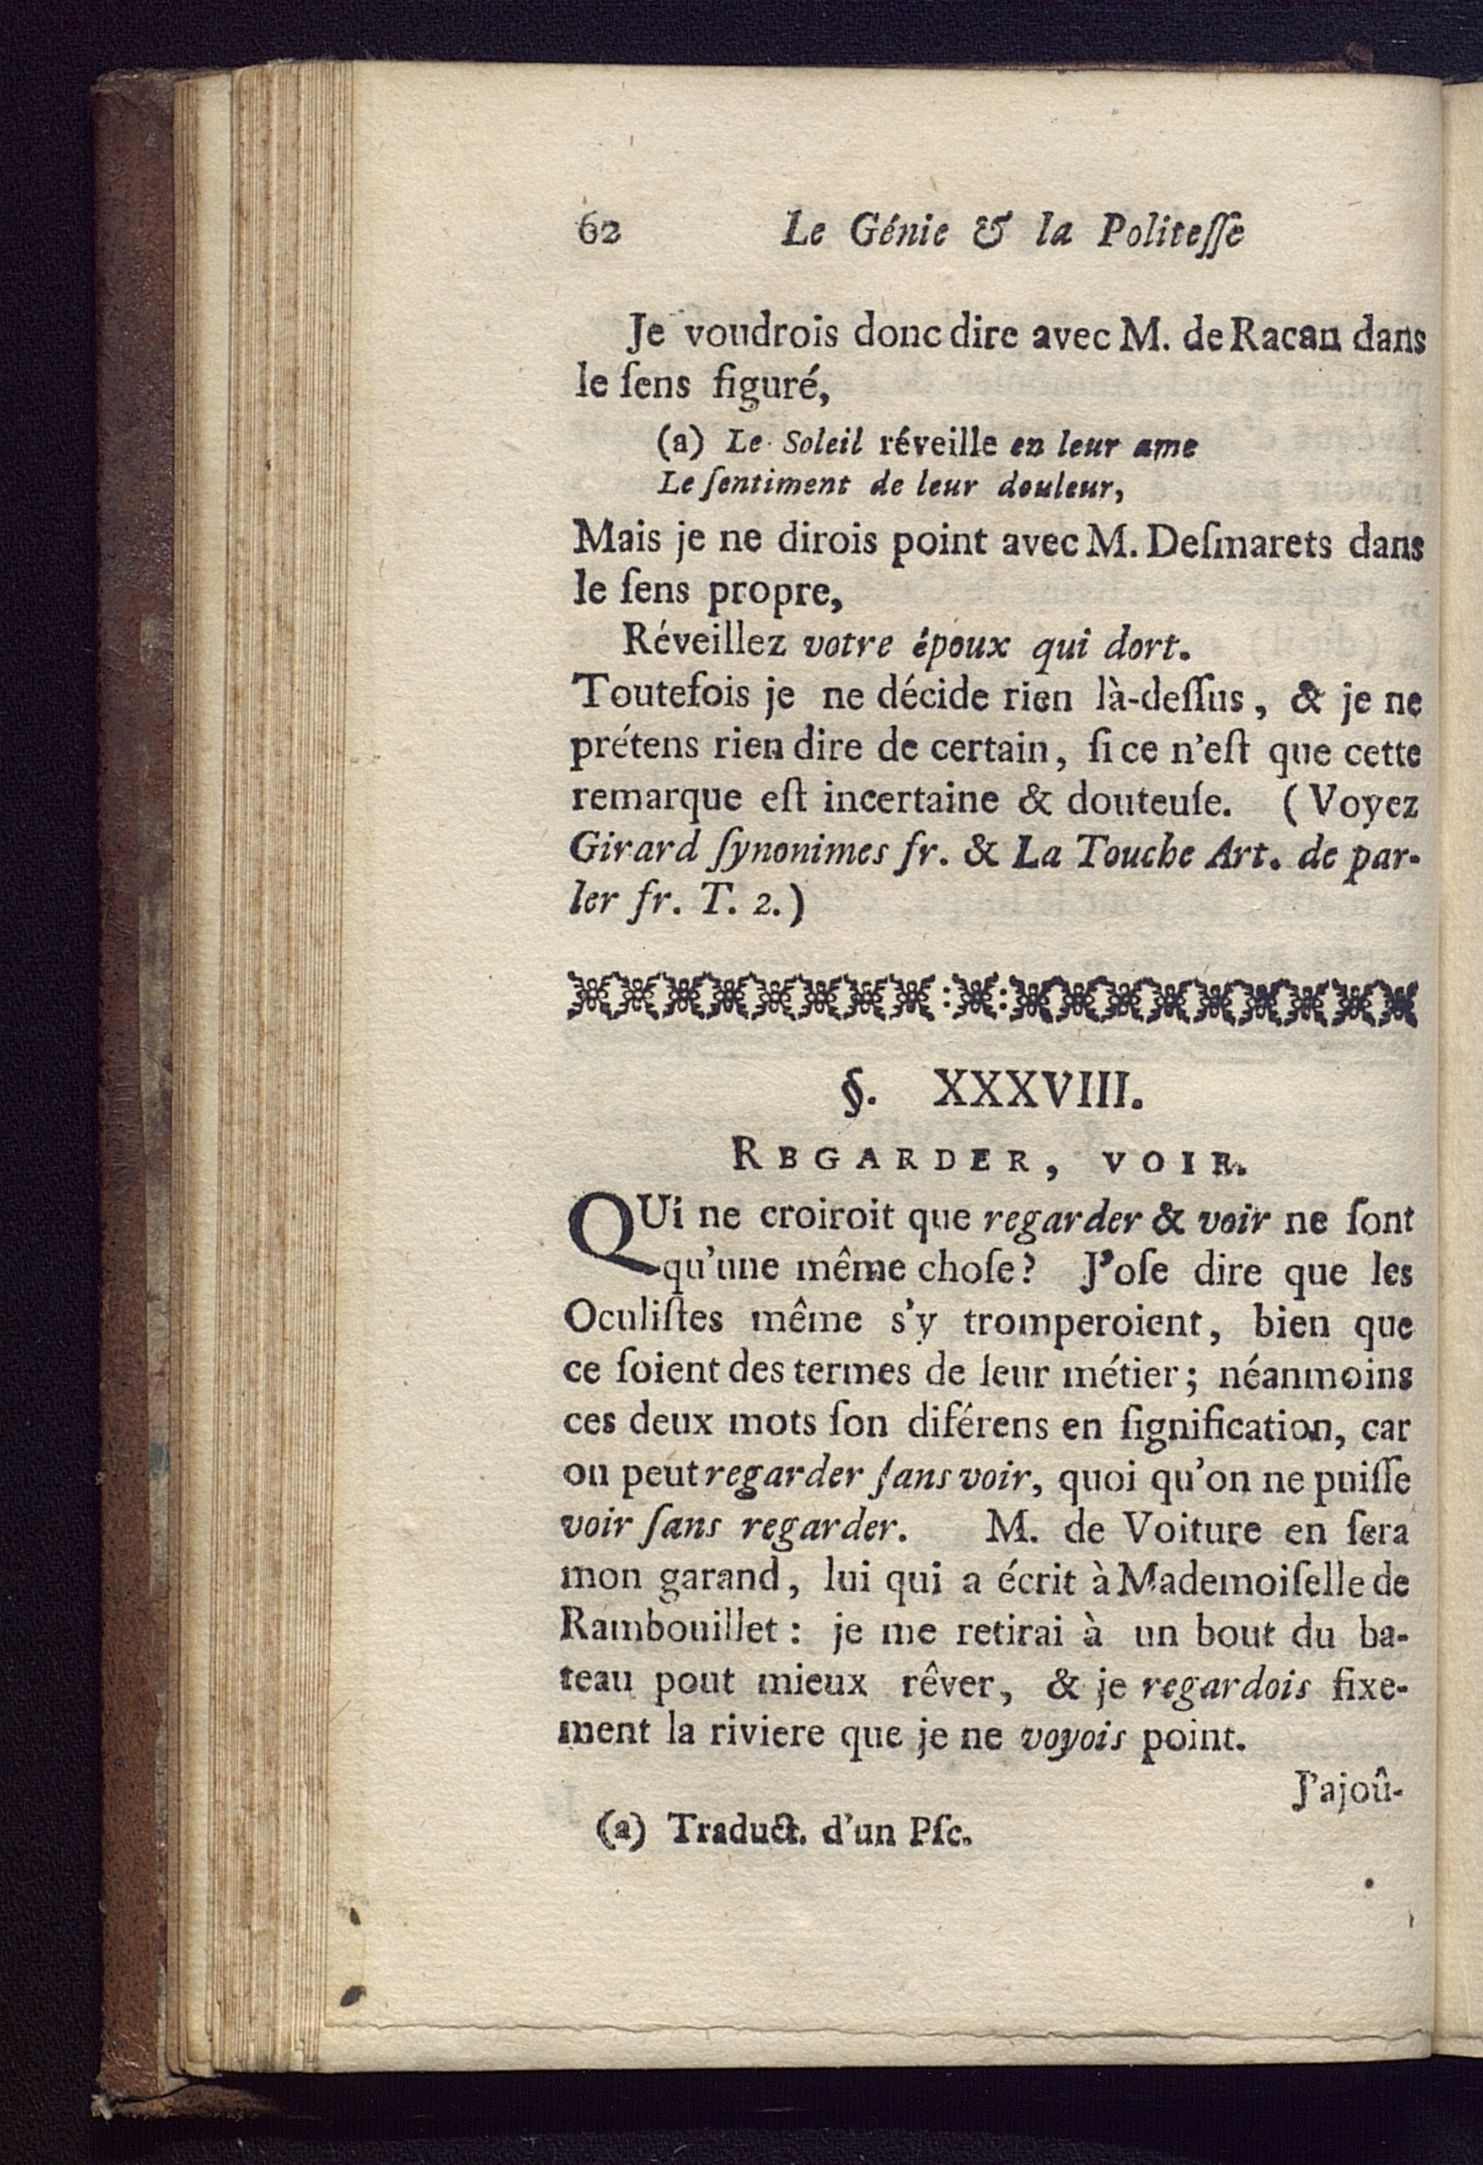 62 Le Génie & la Politeſſe
Je voudrois donc dire avec M. de Racan dans
le ſens figuré,
(a) Le Soleil réveille en leur ame
Le ſentiment de leur douleur,
Mais je ne dirois point avec M. Deſmarets dans
le ſens propre,
Réveillez votre époux qui dort.
Toutefois je ne décide rien là-deſſus, & je ne
prétens rien dire de certain, ſi ce n'eſt que cette
remarque eſt incertaine & douteuſe. (Voyez
Girard ſynonimes fr. & La Touche Art. de par-
ler fr. T. 2.)
§. XXXVIII.
REGARDER, VOIR.
QUi ne croiroit que regarder & voir ne ſont
qu'une même choſe? J'oſe dire que les
Oculiſtes même s'y tromperoient, bien que
ce ſoient des termes de leur métier; néanmoins
ces deux mots ſon diférens en ſignification, car
on peut regarder ſans voir, quoi qu'on ne puiſſe
voir ſans regarder. M. de Voiture en ſera
mon garand, lui qui a écrit à Mademoiſelle de
Rambouillet: je me retirai à un bout du ba-
teau pout mieux rêver, & je regardois fixe-
ment la riviere que je ne voyois point.
J'ajoû-
(a) Traduct. d'un Pſe.